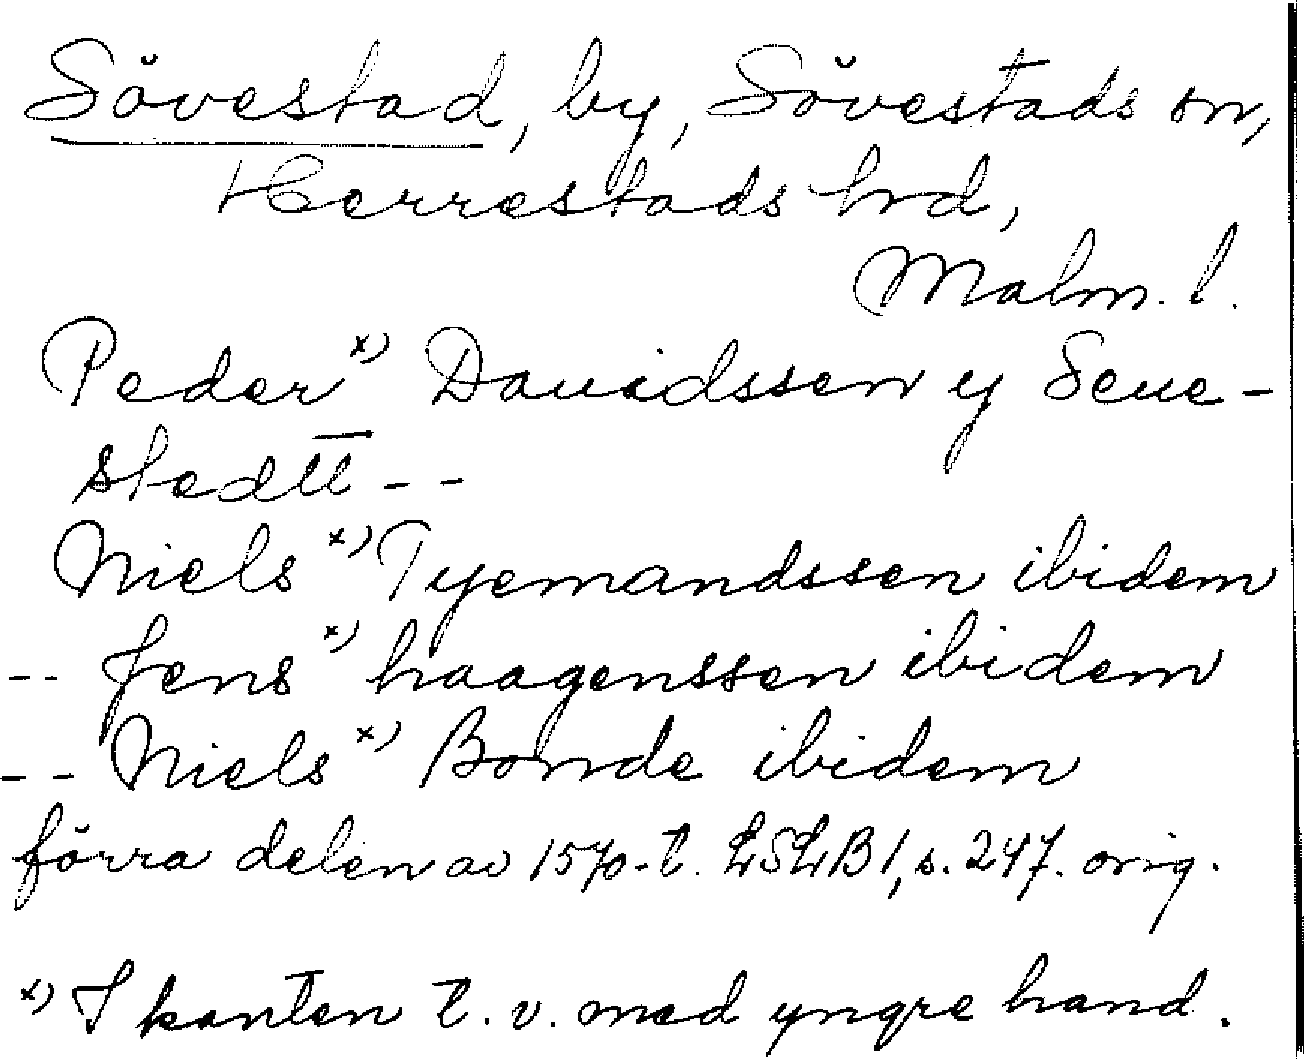 Sövestad, by, Sövestads sn,
Herrestads hrd,
Malm. l.
Peder x) Dauidssen y Seue-
stedtt --
Niels x) Tyemandssen ibidem
-- Jens x) haagenssen ibidem
-- Niels x) Bonde ibidem
förra delen av 1570-t. LSLB1, s. 247. orig.
x) I kanten t. v. med yngre hand.